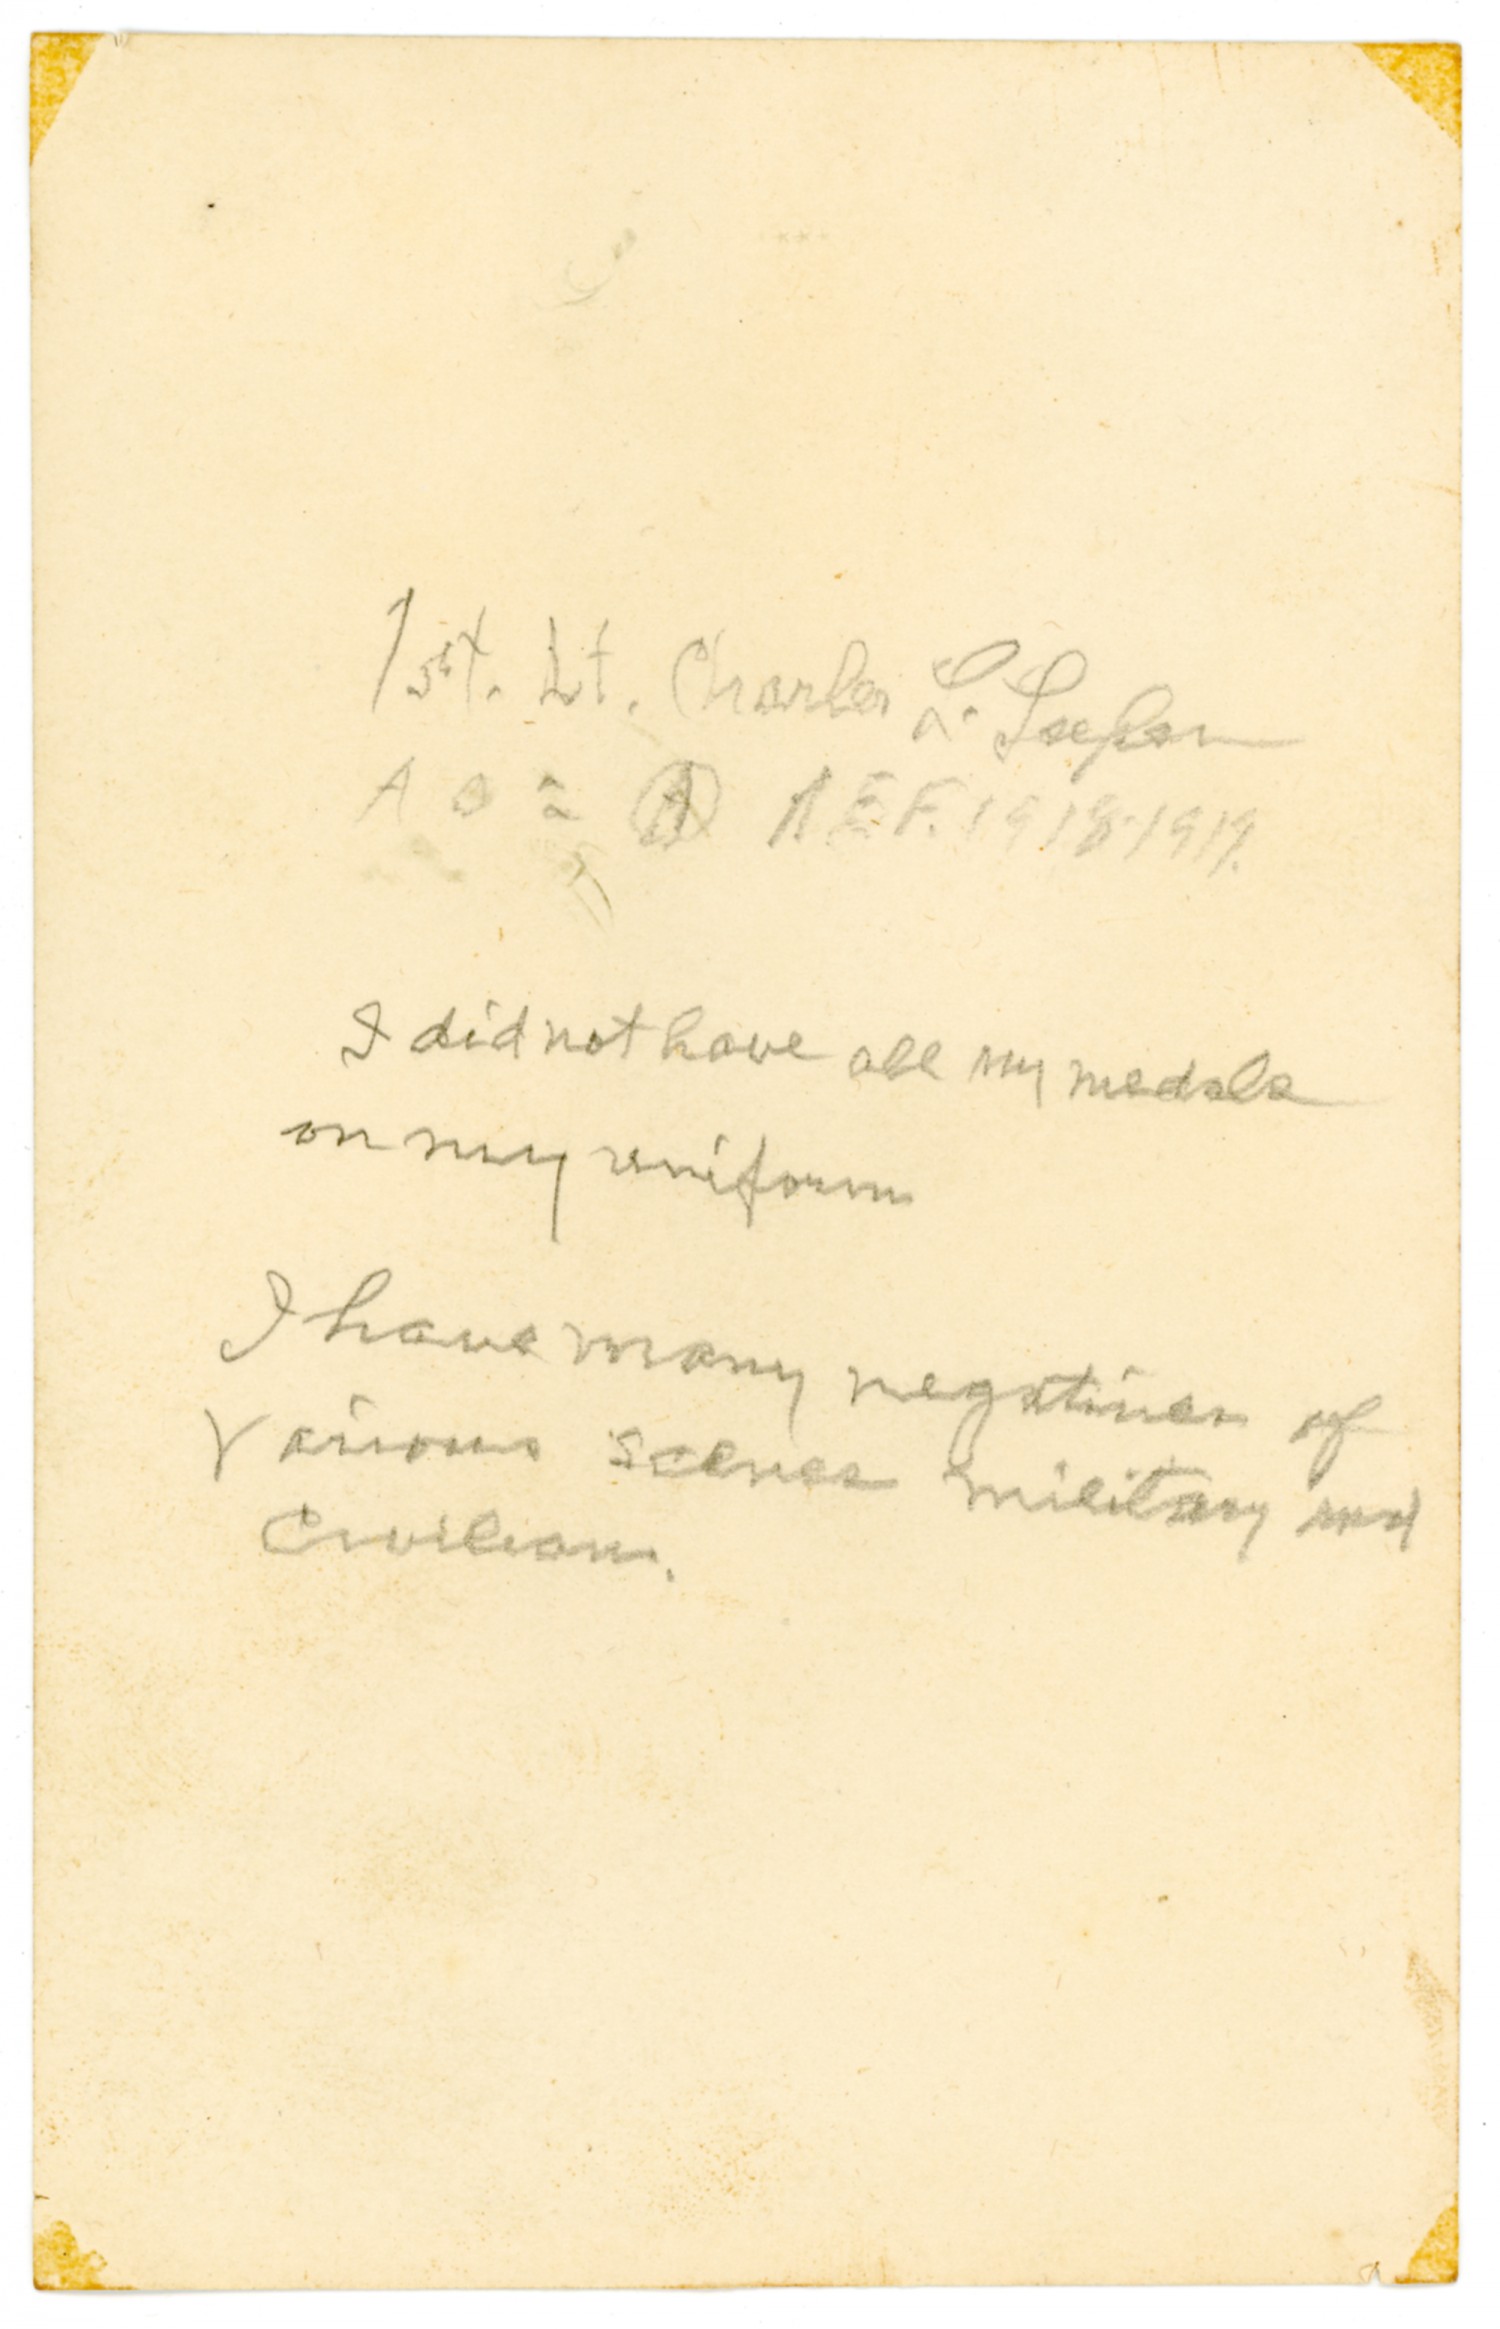 1st. Lt. Charles L.
A (A) A.E.F. 1918-1919.
I did not have all my medals
on my uniform
I have many negatives of
Various scenes military and
Civilian.